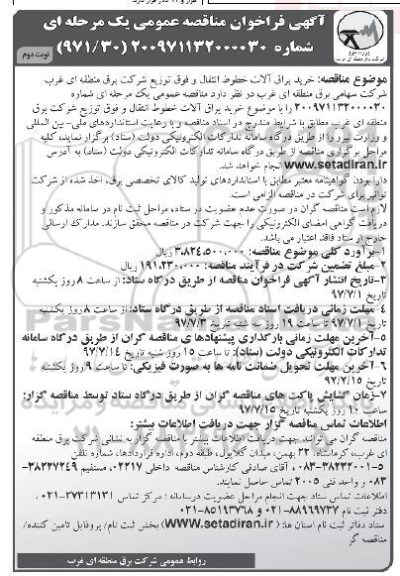 آگهی فراخوان مناقصه عمومی یک مرحله ای
شماره ۲۰۰۹۷۱۱۳۲۰۰۰۰۳۰ (۹۷۱/۳۰)
نوبت دوم
موضوع مناقصه: خرید یراق آلات خطوط انتقال و فوق توزیع شرکت برق منطقه ای غرب
شرکت سهامی برق منطقه ای غرب در نظر دارد مناقصه عمومی یک مرحله ای شماره
۲۰۰۹۷۱۱۳۲۰۰۰۰۳۰ را با موضوع خرید یراق آلات خطوط انتقال و فوق توزیع شرکت برق
منطقه ای غرب مطابق با شرایط مندرج در اسناد مناقصه و با رعایت استانداردهای ملی-بین المللی
و وزارت نیرو را از طریق درگاه سامانه تدارکات الکترونیکی دولت (ستاد) برگزار نماید، کلیه
مراحل برگزاری مناقصه از طریق درگاه سامانه تدارکات الکترونیکی دولت (ستاد) به آدرس
www.setadiran.ir انجام خواهد شد.
دارا بودن گواهینامه معتبر مطابق با استانداردهای تولید کالای تخصصی برق، اخذ شده از شرکت
توانیر برای شرکت در مناقصه الزامی است.
لازم است مناقصه گران در صورت عدم عضویت در ستاد، مراحل ثبت نام در سامانه مذکور و
دریافت گواهی امضای الکترونیکی را جهت شرکت در مناقصه محقق سازند. مدارک ارسالی
خارج از ستاد فاقد اعتبار می باشد.
۱-برآورد کلی موضوع مناقصه: ۳،۸۲۴،۵۰۰،۰۰۰ ریال
۲-مبلغ تضمین شرکت در فرآیند مناقصه: ۱۹۱،۲۳۰،۰۰۰ ریال
۳-تاریخ انتشار آگهی فراخوان مناقصه از طریق درگاه ستاد: از ساعت ۸ روز یکشنبه
تاریخ ۹۷/۷/۱
۴-مهلت زمانی دریافت اسناد مناقصه از طریق درگاه ستاد: از ساعت ۸ روز یکشنبه
تاریخ ۹۷/۷/۱ تا ساعت ۱۹ روز سه شنبه تاریخ ۹۷/۷/۳
۵-آخرین مهلت زمانی بارگذاری پیشنهادهای مناقصه گران از طریق درگاه سامانه
تدارکات الکترونیکی دولت (ستاد): تا ساعت ۱۵ روز شنبه تاریخ ۹۷/۷/۱۴
۶-آخرین مهلت تحویل ضمانت نامه ها به صورت فیزیکی: تا ساعت ۹ روز یکشنبه
تاریخ ۹۷/۷/۱۵
۷-زمان گشایش پاکت های مناقصه گران از طریق درگاه ستاد توسط مناقصه گزار:
ساعت ۱۰ روز یکشنبه تاریخ ۹۷/۷/۱۵
اطلاعات تماس مناقصه گزار جهت دریافت اطلاعات بیشتر:
مناقصه گران می توانند جهت دریافت اطلاعات بیشتر با مناقصه گزار به نشانی شرکت برق منطقه
ای غرب، کرمانشاه: ۲۲ بهمن، میدان گلایول، طبقه دوم، اداره قراردادها، شماره تلفن
۵-۰۸۳-۳۸۲۳۲۰۰۱ ، آقای صادقی کارشناس مناقصه داخلی ۰۲۲۱۷، مستقیم ۳۸۲۲۷۲۴۹-
۰۸۳ و واحد فنی ۲۰۰۵ تماس حاصل نمایند.
اطلاعات تماس ستاد جهت انجام مراحل عضویت در سامانه : مرکز تماس ۲۷۳۱۳۱۳۱-۰۲۱ ،
دفتر ثبت نام ۸۸۹۶۹۷۳۷-۰۲۱ و ۸۵۱۹۳۷۶۸-۰۲۱
ستاد دفاتر ثبت نام استان ها: (www.setadiran.ir) بخش ثبت نام/ پروفایل تامین کننده/
مناقصه گر
روابط عمومی شرکت برق منطقه ای غرب